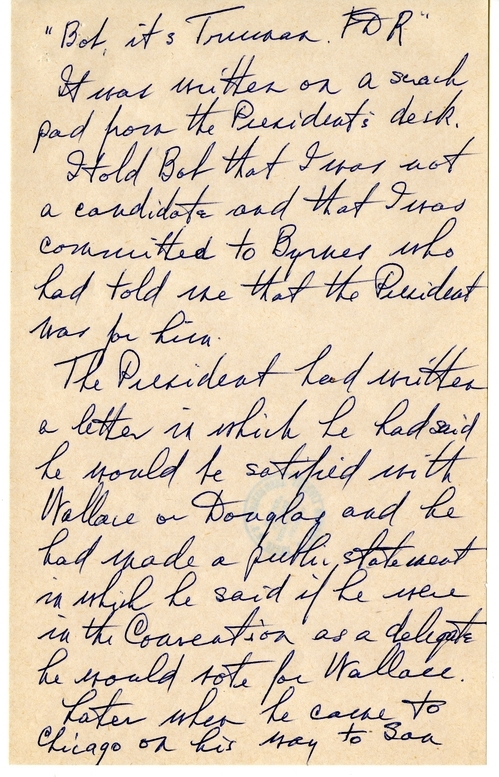 "Bob, it's Truman. FDR"
It was written on a scrach
pad from the President's desk.
I told Bob that I was not
a candidate and that I was
committed to Byrnes who
had told me that the President
was for him.
The President had written
a letter in which he had said
he would be satisfied with
Wallace or Douglas and he
had made a public statement
in which he said if he were
in the Convention as a delegate
he would vote for Wallace.
Later when he came to
Chicago on his way to San